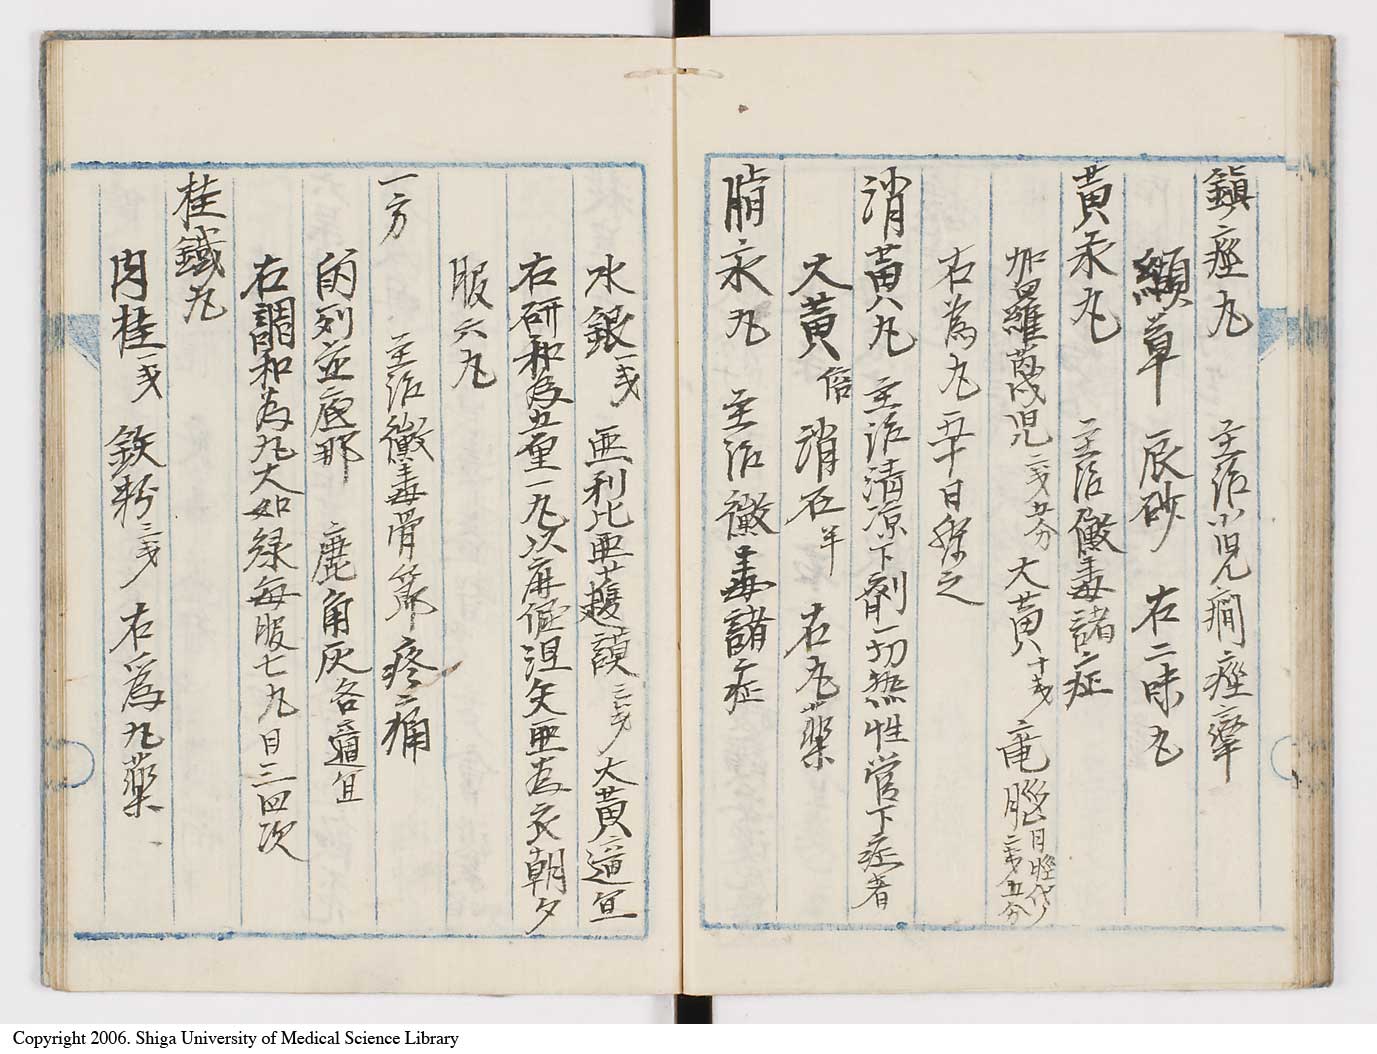 鎮痙丸　主治小児癇痙攣
纈草　辰砂　右二味丸
黄汞丸　主治黴毒諸症
加羅茂児二戔五分　大黄十戔　竜脳
右為丸五十日
消黄丸　主治清凉下剤一切熱性當下症者
大黄倍　消石半　右丸藥
汞丸　主治黴毒諸症
水銀一戔　亜利比亜護謨三戔　大黄適宜
右研和為五重一丸次亜為衣朝夕
服六丸
一方　主治黴毒骨節疼痛
的列並底那　鹿角灰各適宜
右調和為丸大如緑毎服七丸日三四次
桂鐵丸
肉桂一戔　鉄粉三戔　右為丸藥
Copyright 2006. Shiga University of Medical Science Library